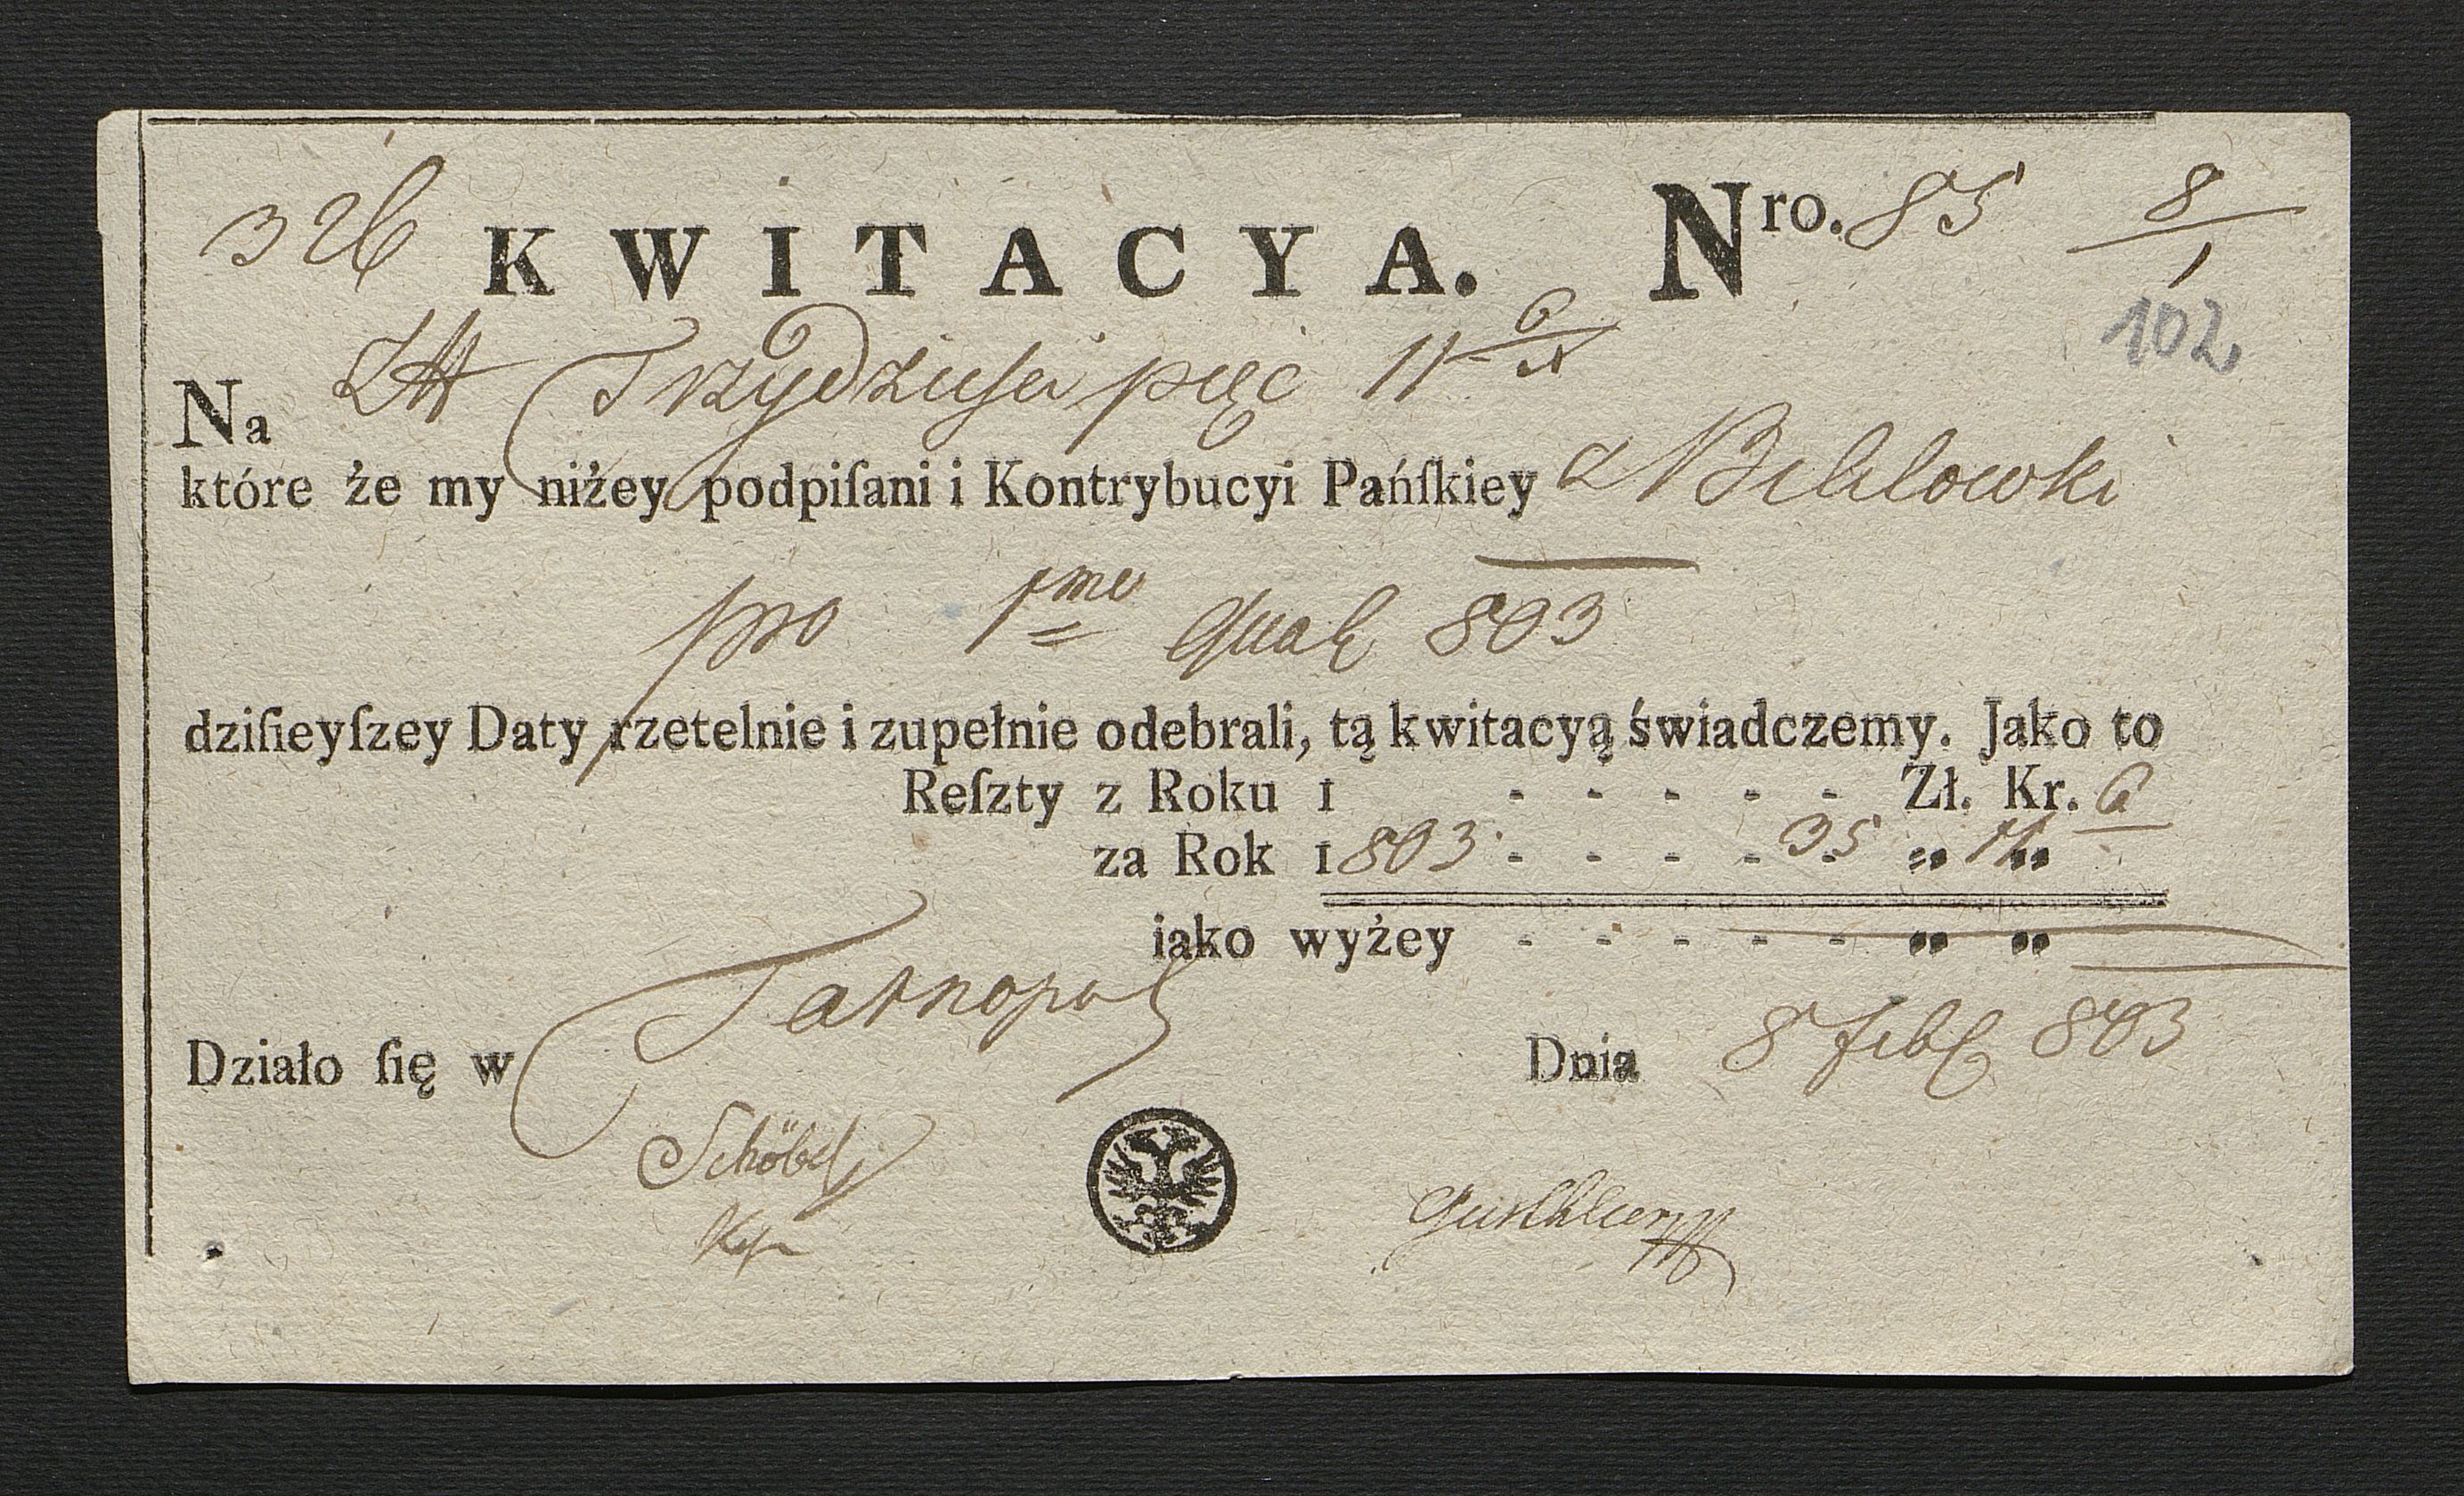 326 KWITACYA. Nro. 85 8/1
102
Na Trzydzieści pięć 11 6/
które że my niżey podpiſani i Kontrybucyi Pańſkiey z
pro 1mo Quar 803
dziſieyſzey Daty rzetelnie i zupełnie odebrali, tą kwitacyą świadczemy. Jako to
Reſzty z Roku 1 - - - - - Zł. Kr. 6
za Rok 1803 - - - - 35 „ 11 „
iako wyżey - - - - - „ „
Działo ſię w Tarnopol Dnia 8 febr 803
Schöbel